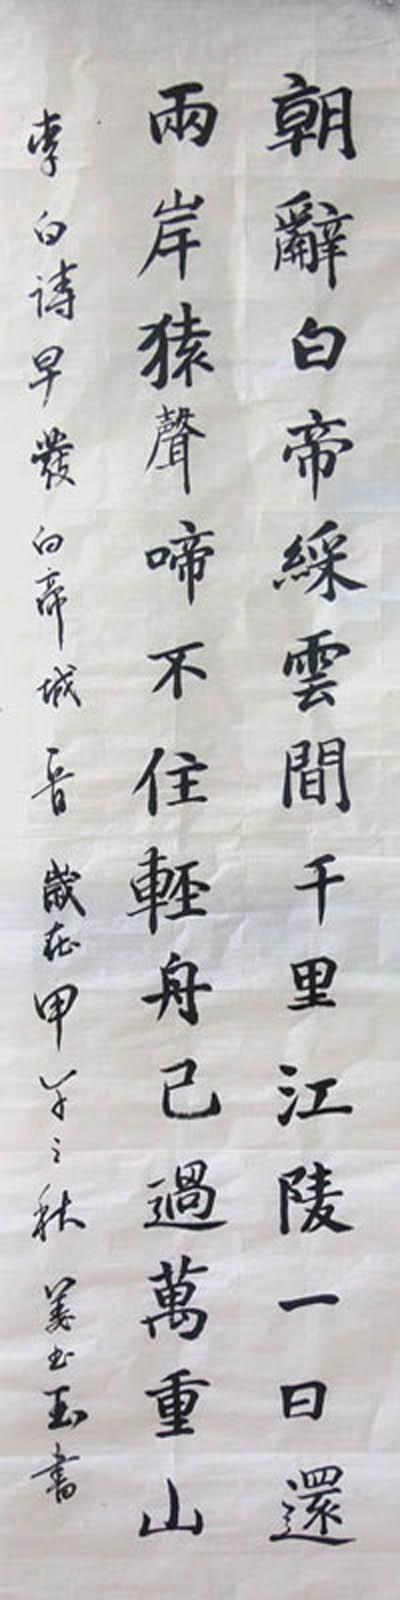 朝辭白帝綵雲間千里江陵一日還
兩岸猿聲啼不住輕舟已過萬重山
李白詩早發白帝城 歲在甲午之秋 玉書